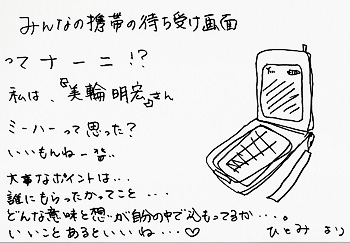 みんなの携帯の待ち受け画面
ってナーニ!?
私は、『美輪明宏』さん
ミーハーって思った?
いいもんねー
大事なポイントは…
誰にもらったかってこと・・・
どんな意味と想いが自分の中で込もってるか…。
いいことあるといいね…♡
ひとみ より